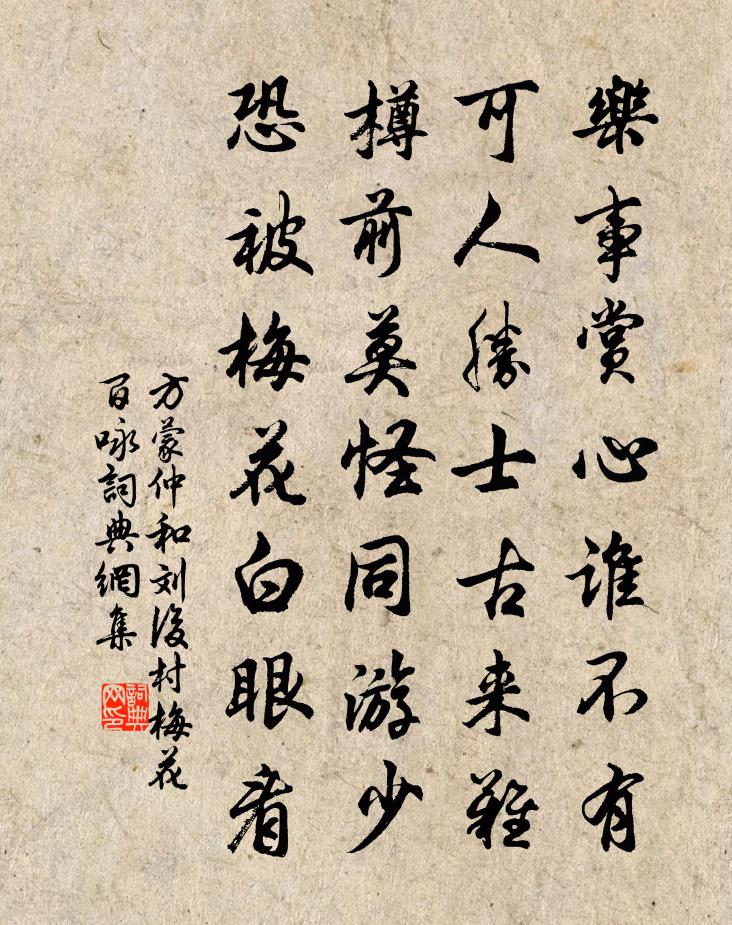 樂事賞心誰不有
可人勝士古来難
樽前莫怪同游少
恐被梅花白眼看
方蒙仲和刘後村梅花
百咏詞典網集
詞典网印